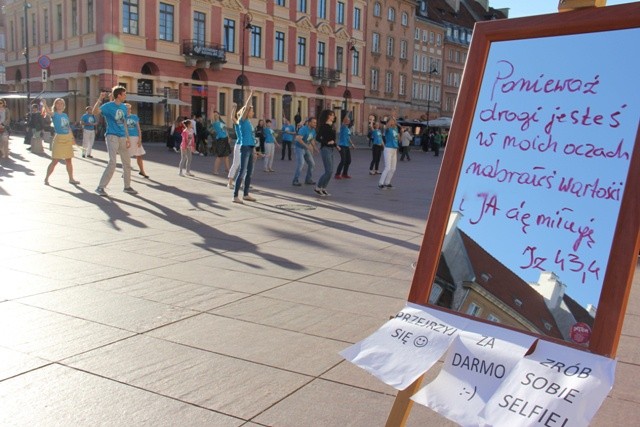 Ponieważ
drogi jesteś
w moich oczach
nabrałeś wartości
i JA cię miłuję
Iz 43,4
PRZEJRZYJ
SIĘ ☺
ZA
DARMO
:-)
ZRÓB
SOBIE
SELFIE!